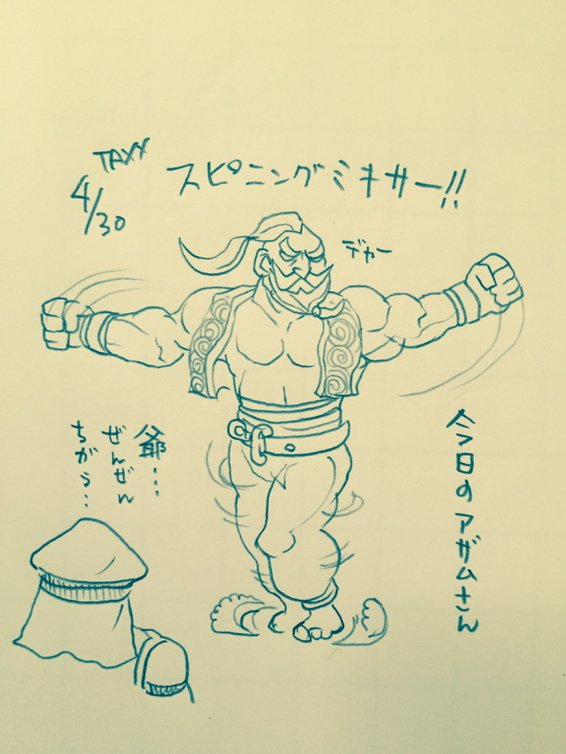 TAXX
4/30
スピニングミキサー!!
デカー
爺…
ぜんぜん
ちがう…
今日のアザムさん